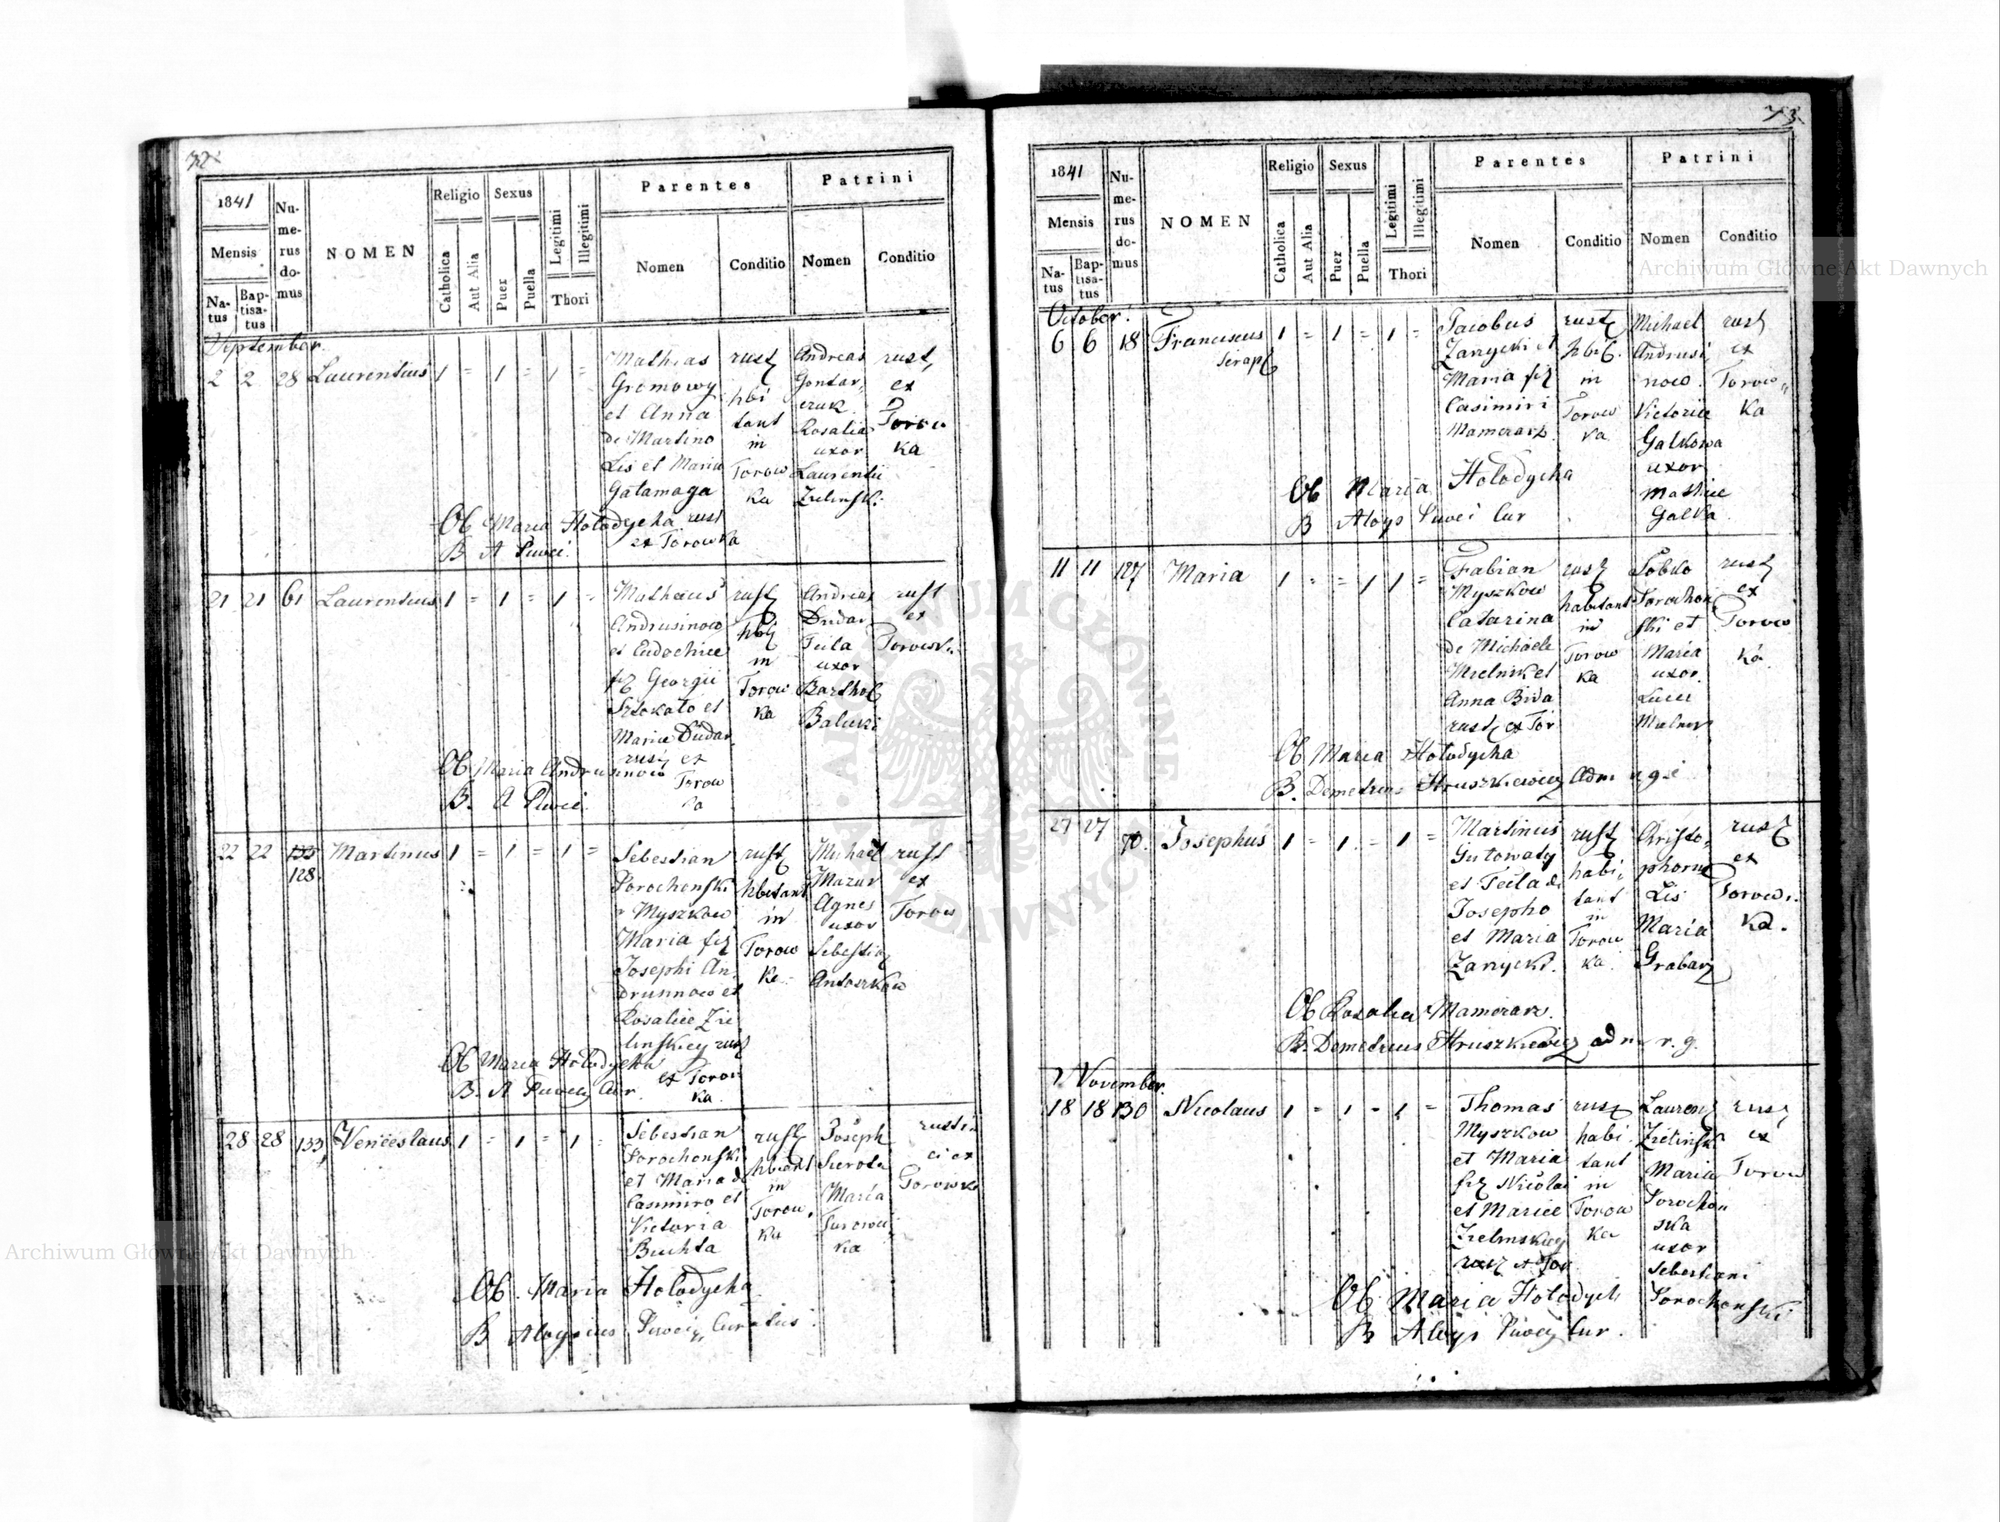 72.
1841
Mensis
Natus
Baptisatus
Numerus domus
NOMEN
Religio
Catholica
Aut Alia
Sexus
Puer
Puella
Legitimi
Illegitimi
Thori
Parentes
Nomen
Conditio
Patrini
Nomen
Conditio
September.
2 2 28 Laurentius 1 = 1 = 1 =
Mathias
Gromowy
et Anna
de Martino
Lis et Maria
Gatamaga
rust
hbi
tant
in
Torow
ka
Andreas
Gontar,
czuk.
Rosalia
uxor
Laurentii
Zielinski.
rust,
ex
Torow
ka
Ob Maria Hołodycha rust
ex Torowka
B. A Puwci.
21 21 61 Laurentius 1 = 1 = 1 =
Mathaeus
Andrusinow
et Eudochiae
Georgii
Sztokało et
Maria Dudar
rust ex
Torow
ka
rust
hbt
in
Torow
ka
Andreas
Dudar
Tecla
uxor
Barthol
Baluczi
rust
ex
Torowk.
Ob Maria Andrusinow
B. A Puwci.
22 22 133 Martinus 1 = 1 = 1 =
128.
Sebestian
Dorochonski
Myszkow
Maria
Josephi An,
drunnow et
Rosaliae Zie
linskiey rust
ex Torow
ka.
rust
hbitant
in
Torow
ka
Michael
Mazur
Agnes
uxor
Sebestia
Antoszkow
rust
ex
Torow
Ob Maria Hołodycha
B. A Puwci Cur.
28 28 133, Venceslaus 1 = 1 = 1 =
Sebestian
Dorochonski
et Maria de
Casimiro et
Victoria
Buchta
rust
hbitant
in
Torow,
ka
Joseph
Sierota
Maria
ka
rusti
ci ex
Torowka
Ob. Maria Hołodycha
B Aloysius Puwci, Curatus.
73.
1841
Mensis
Natus
Baptisatus
Numerus domus
NOMEN
Religio
Catholica
Aut Alia
Sexus
Puer
Puella
Legitimi
Illegitimi
Thori
Parentes
Nomen
Conditio
Patrini
Nomen
Conditio
October.
6 6 18 Franciscus 1 = 1 = 1 =
Seraph
Jacobus
Zarycki et
Maria
Casimiri
Mamerarz.
rust
hbt.
in
Torow
ka
Michael
Andrusi,
now.
Victoria
Galkowa
uxor
Mathiae
Galka.
rust
ex
Torow,,
ka
Ob Maria Hołodycha
B Aloys Puwci Cur
11 11 127 Maria 1 = = 1 1 =
Fabian
Myszkow
Catarina
de Michaele
Mielnik et
Anna Bida
rust ex Tor
rust
habitant
in
Torow
ka
Dorochon
ski et
Maria
uxor.
rust
ex
Torow
ka.
Ob Maria Hołodycha
B. Demetrius Hruszkiewicz Adm r g.
27 27 70. Josephus 1 = 1. = 1 =
Martinus
Gutowaty
et Tecla de
Josepho
et Maria
Zarycki.
rust
habi,
tant
in
Torow
ka.
Christo,
phorus
Lis
Maria
Grabarz
rust
ex
Torow,,
ka.
Ob Rosalia Mamerarz.
B. Demetrius Hruszkiewicz adm r. g.
November.
18 18 130 Nicolaus 1 = 1 = 1 =
Thomas
Myszkow
et Maria
Nicolai
et Mariae
Zielinskiey
rust ex Tor
rust
habi
tant
in
Torow
ka
Laurent
Zielinski
Maria
Dorochon
ska
uxor
Sebestiani
Dorochonski
rust
ex
Torow
Ob Maria Hołodych
B Aloys Puwci Cur.
Archiwum Główne Akt Dawnych
Archiwum Główne Akt Dawnych
ARCHIWUM GŁÓWNE AKT DAWNYCH